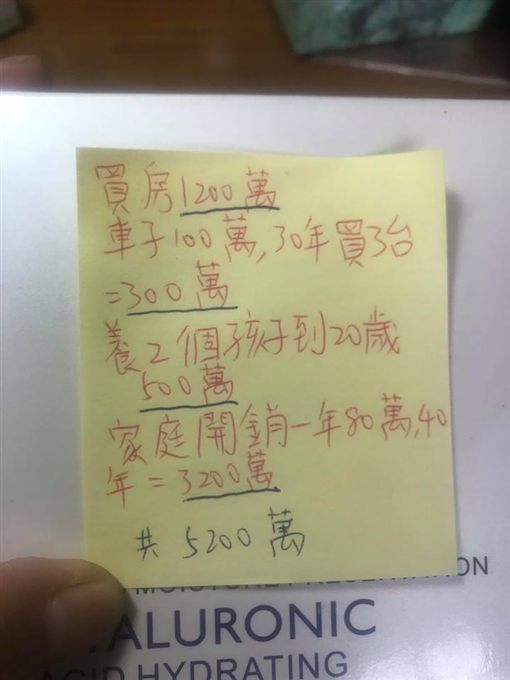 買房1200萬
車子100萬,30年買3台
=300萬
養2個孩子到20歲
500萬
家庭開銷一年80萬,40
年=3200萬
共 5200萬
ALURONIC
ACID HYDRATING